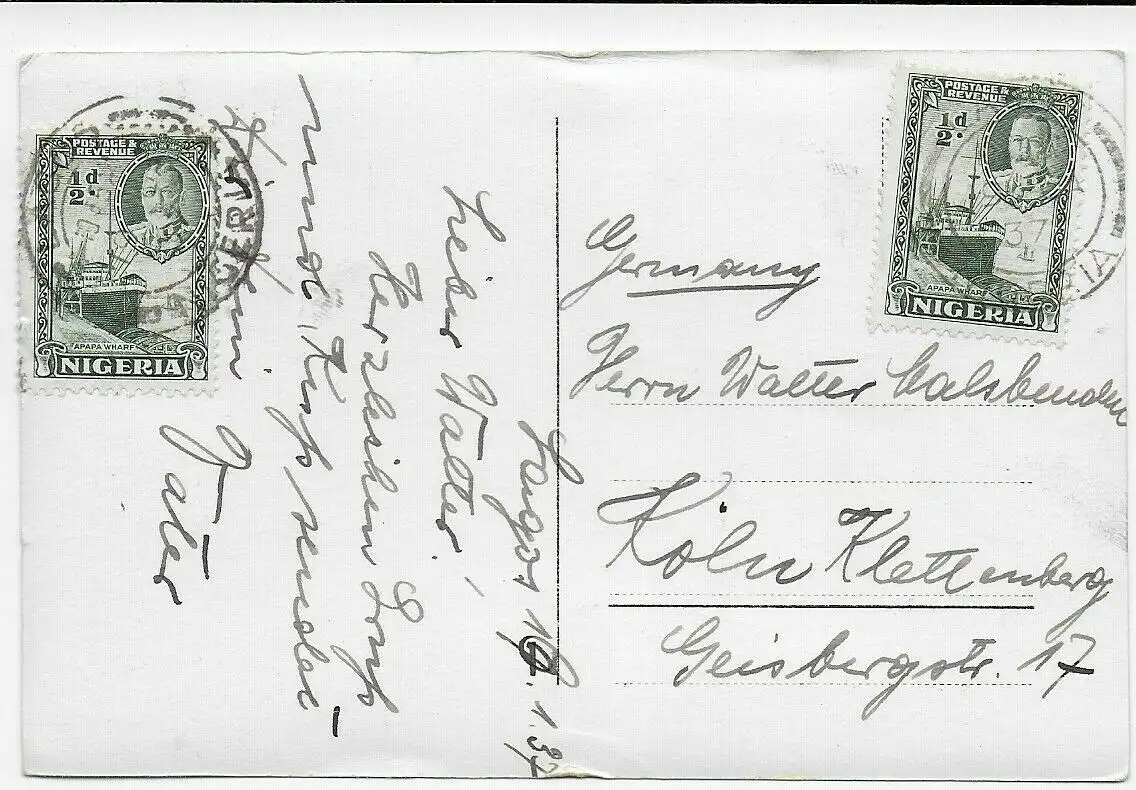 POSTAGE &
REVENUE
½d.
APAPA WHARF
NIGERIA
NIGERIA
POSTAGE &
REVENUE
½d.
APAPA WHARF
NIGERIA
37
IA
Lagos 1.37
Lieber Walter,
Herzlichen Gruß
und Kuß sendet
Dein
Vater
Germany
Herrn Walter Malsbenden
Köln Klettenberg
Geisbergstr. 17